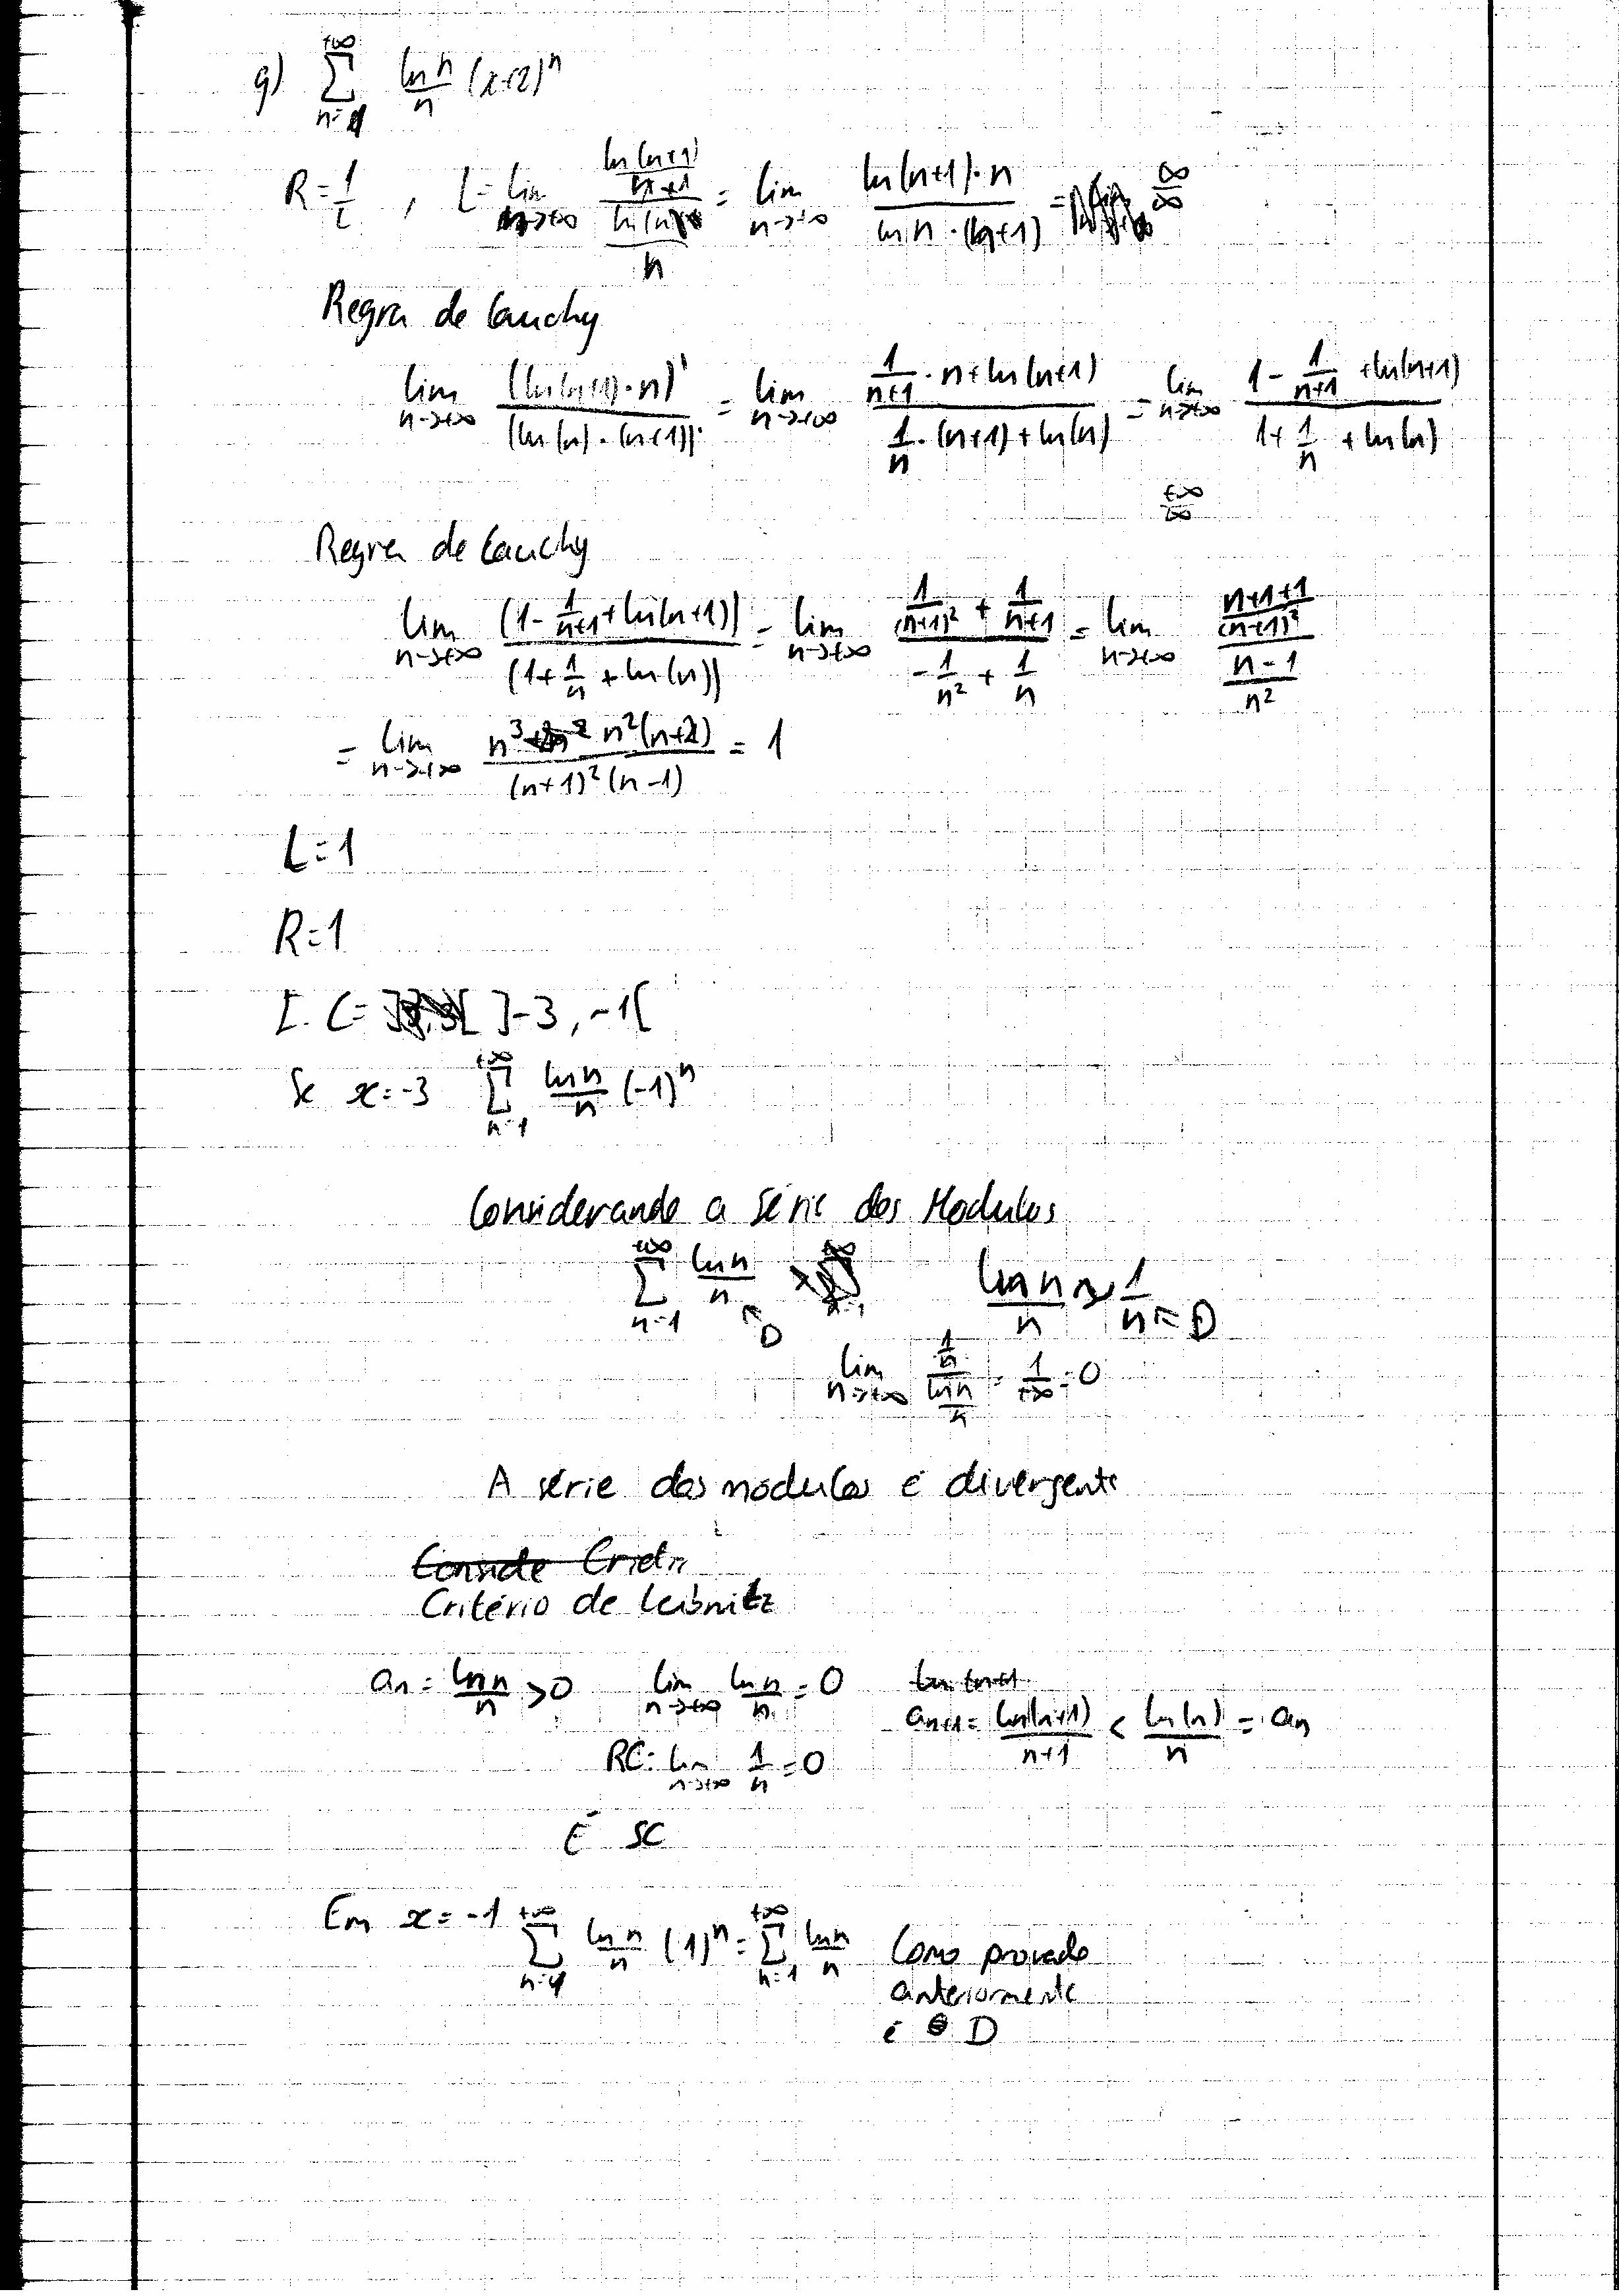 g) \sum_{n=1}^{+\infty} \frac{\ln n}{n} (x+2)^n
R = \frac{1}{L} , L = \lim_{n \to +\infty} \frac{\frac{\ln(n+1)}{n+1}}{\frac{\ln(n)}{n}} = \lim_{n \to +\infty} \frac{\ln(n+1) \cdot n}{\ln n \cdot (n+1)} = \frac{\infty}{\infty}
Regra de Cauchy
\lim_{n \to +\infty} \frac{(\ln(n+1) \cdot n)'}{(\ln(n) \cdot (n+1))'} = \lim_{n \to +\infty} \frac{\frac{1}{n+1} \cdot n + \ln(n+1)}{\frac{1}{n} \cdot (n+1) + \ln(n)} = \lim_{n \to +\infty} \frac{1 - \frac{1}{n+1} + \ln(n+1)}{1 + \frac{1}{n} + \ln(n)}
\frac{+\infty}{+\infty}
Regra de Cauchy
\lim_{n \to +\infty} \frac{(1 - \frac{1}{n+1} + \ln(n+1))'}{(1 + \frac{1}{n} + \ln(n))'} = \lim_{n \to +\infty} \frac{\frac{1}{(n+1)^2} + \frac{1}{n+1}}{-\frac{1}{n^2} + \frac{1}{n}} = \lim_{n \to +\infty} \frac{\frac{n+1+1}{(n+1)^2}}{\frac{n-1}{n^2}}
= \lim_{n \to +\infty} \frac{n^2(n+2)}{(n+1)^2(n-1)} = 1
L = 1
R = 1
I. C = ]-3, -1[
Se x = -3 \sum_{n=1}^{+\infty} \frac{\ln n}{n} (-1)^n
Considerando a série dos Modulos
\sum_{n=1}^{+\infty} \frac{\ln n}{n} ↖ D \frac{\ln n}{n} > \frac{1}{n} ↖ D
\lim_{n \to +\infty} \frac{\frac{1}{n}}{\frac{\ln n}{n}} = \frac{1}{+\infty} = 0
A série dos modulos é divergente
Critério de Leibnitz
a_n = \frac{\ln n}{n} > 0 \lim_{n \to +\infty} \frac{\ln n}{n} = 0 a_{n+1} = \frac{\ln(n+1)}{n+1} < \frac{\ln(n)}{n} = a_n
RC: \lim_{n \to +\infty} \frac{1}{n} = 0
É SC
Em x = -1 \sum_{n=1}^{+\infty} \frac{\ln n}{n} (1)^n = \sum_{n=1}^{+\infty} \frac{\ln n}{n} Como provado
anteriormente
é D